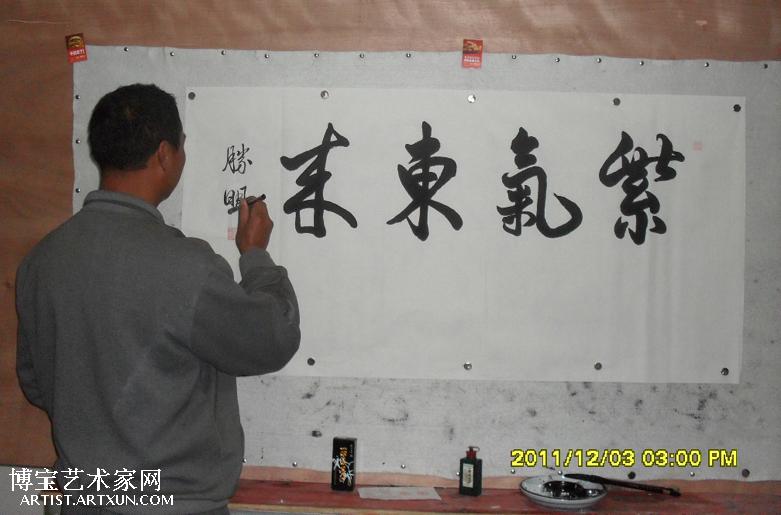 紫氣東来
勝明
2011/12/03 03:00 PM
博宝艺术家网
ARTIST.ARTXUN.COM